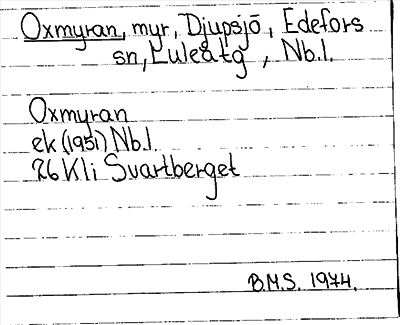 Oxmyran, myr, Djupsjö, Edefors
sn, Luleå tg, Nb.l.
Oxmyran
ek (1951) Nb.l.
26 Kli Svartberget
B.M.S. 1974.